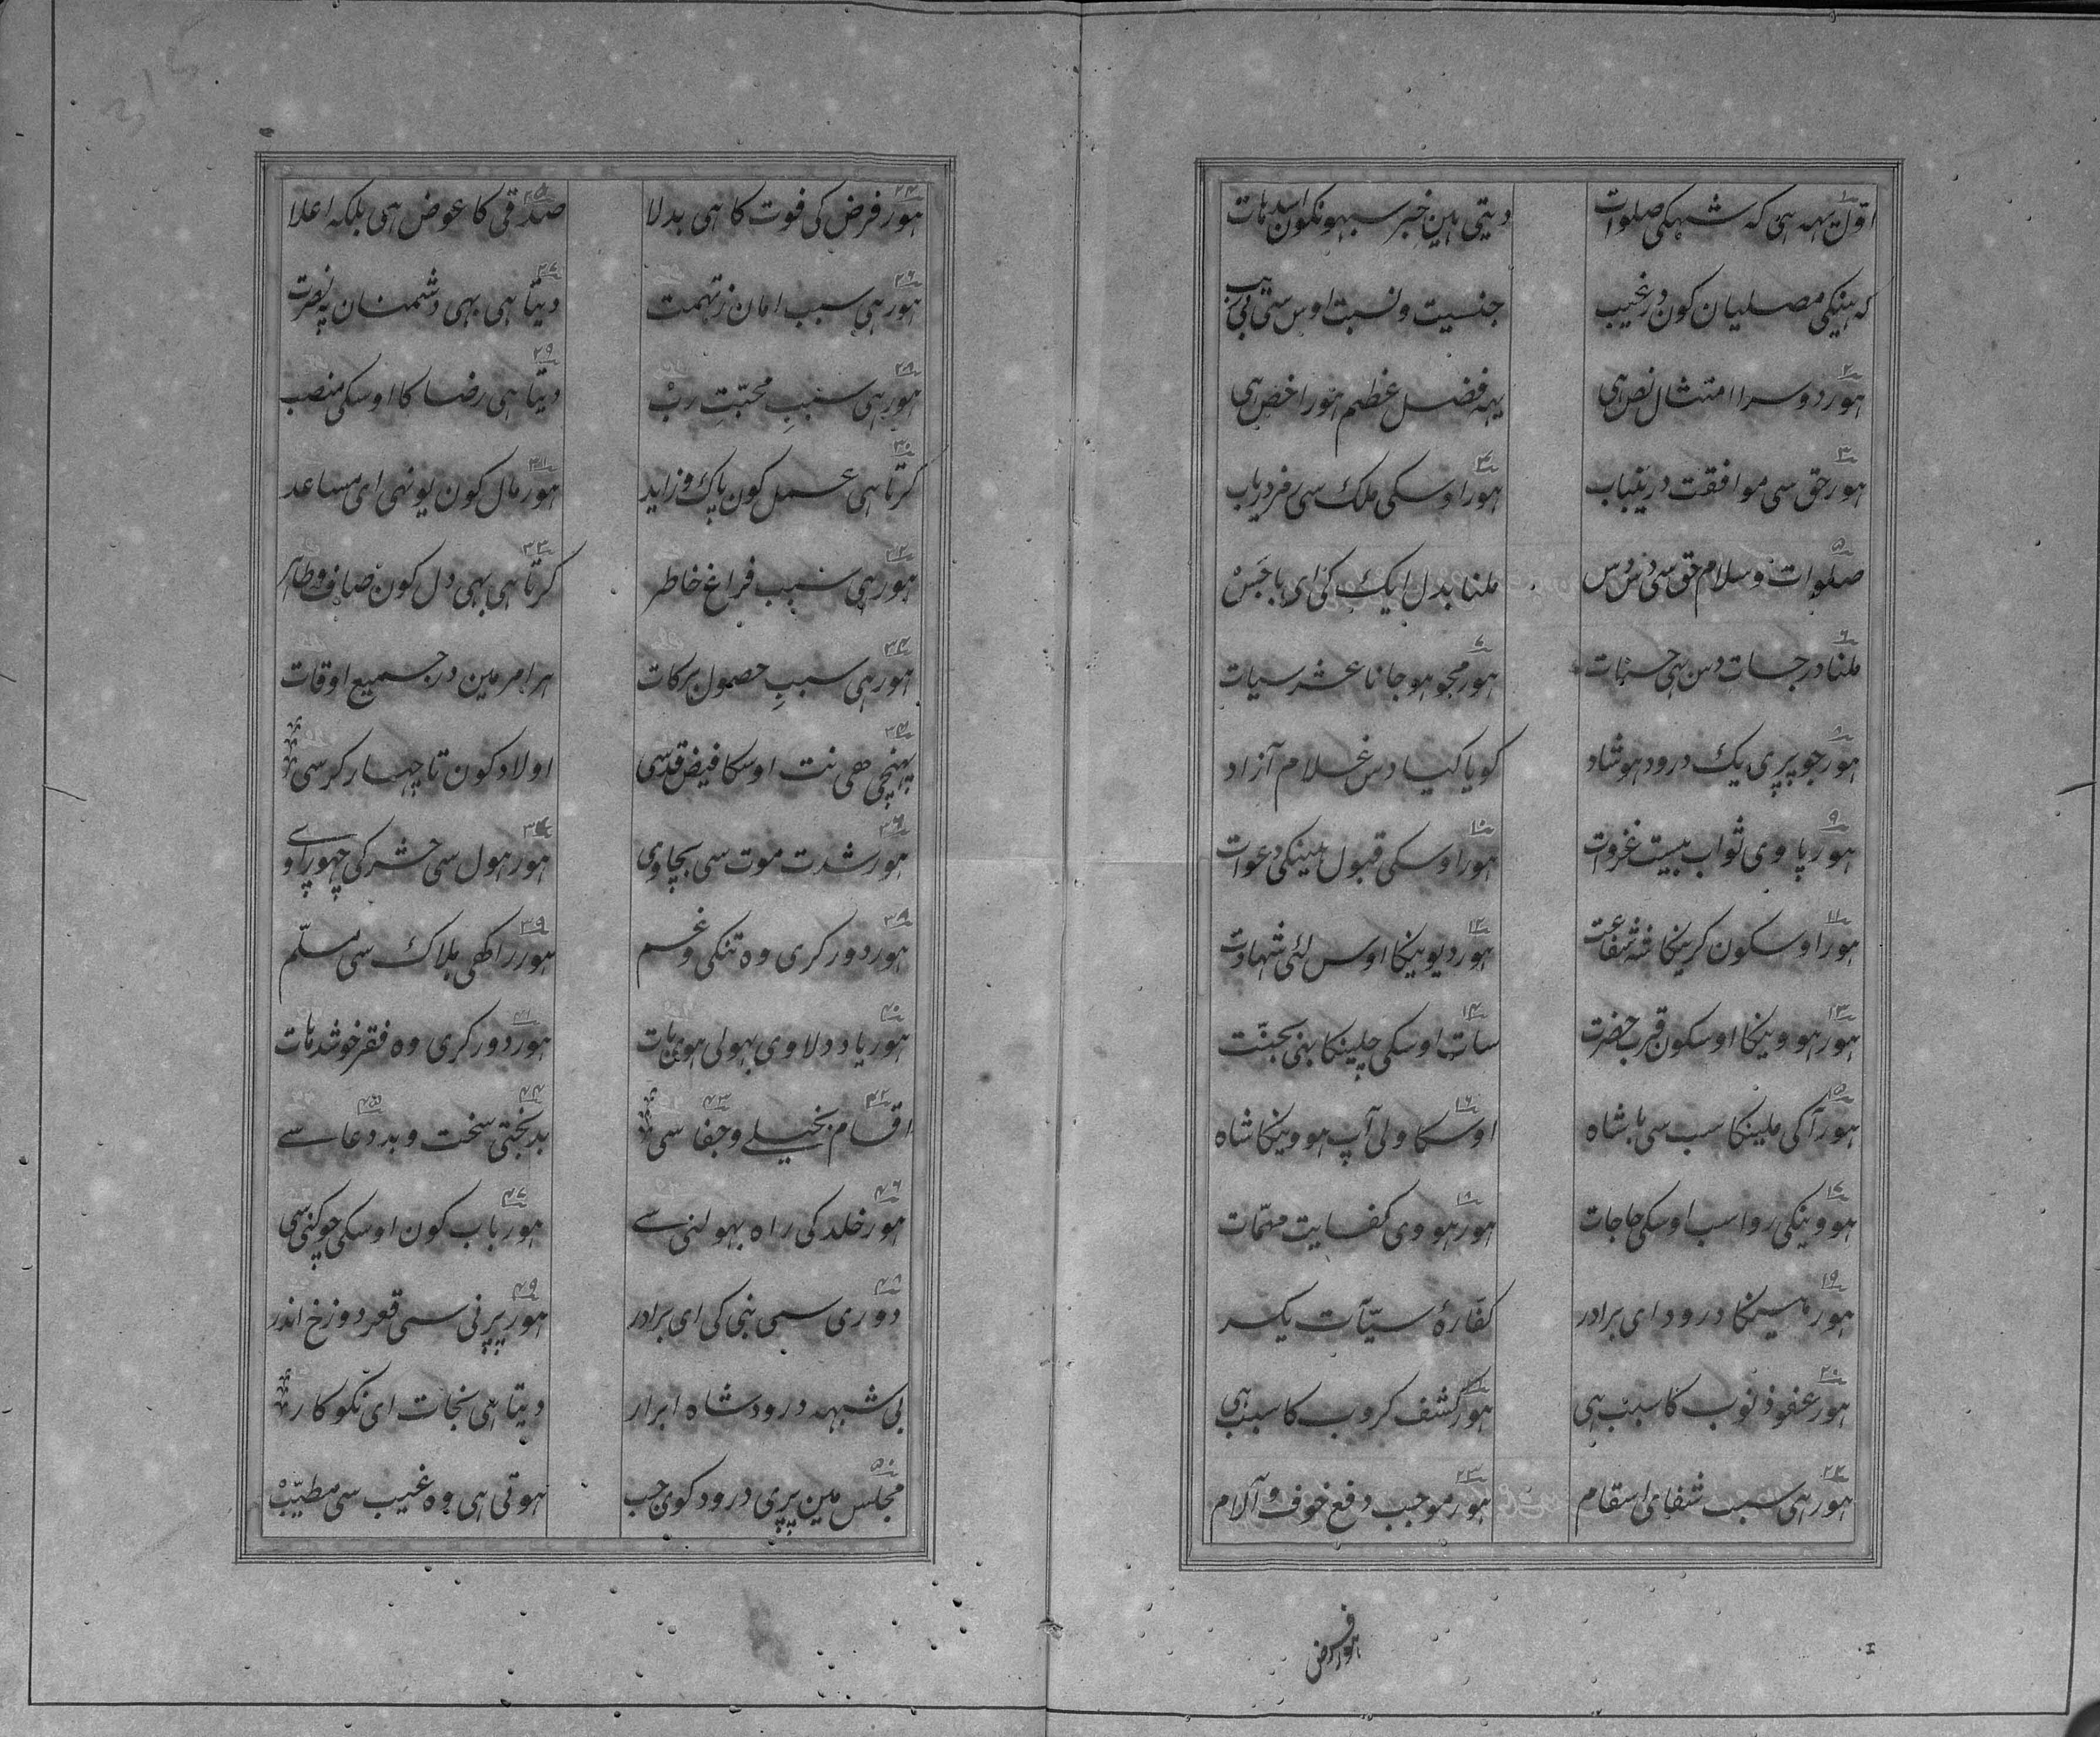 اول یہہ ہی کہ شہکی صلوات دیتی ہین خبر سبہونکون
کہ ہینکی مصلیان کون در غیب جنسیت و نسبت اوس ستی
ہور دوسرا امتثال نص ہی یہہ فضل عظیم ہور اخص ہی
ہور حق سی موافقت در ہور اوسکی ملک سی
صلوات و سلام حق سی دس دس ملنا بدل ایک کی ای
ملنا درجات دس ہی حسنات ہور محو ہو جانا عشر سیات
ہور جو پری یک درود ہو شاد کویا کیا دس غلام آزاد
ہور پاوی ثواب بیست غزوات ہور اوسکی قبول ہینکی دعوات
ہور اوسکون کرینکا شہ شفاعت ہور دیوینکا اوس لئی شہادت
ہور ہووینکا اوسکون قرب حضرت سات اوسکی چلینکا بنی بجنّت
ہور آکی ملینکا سب سی باشاہ اوسکا ولی آپ ہووینکا شاہ
ہووینکی روا سب اوسکی حاجات ہور ہووی کفایت مہمّات
ہور درود ای برادر کفّارۂ سیّآت یکسر
ہور عفو ذنوب کا سبب ہی ہور کشف کروب کا سبب ہی
ہور ہی سبب شفای اسقام ہور موجب دفع خوف و آلام
ہور فرض
ہور فرض کی فوت کا ہی بدلا صدقی کا عوض ہی بلکہ اعلا
ہور ہی سبب امان ز تہمت دیتا ہی بہی دشمنان پہ نصرت
ہور ہی سببِ محبّتِ ربْ دیتا ہی رضا کا اوسکی منصب
کرتا ہی عمل کون پاک و زاید ہور مال کون یونہی ای مساعد
ہور ہی سبب فراغ خاطر کرتا ہی بہی دل کون صاف و طاہر
ہور ہی سببِ حصول برکات ہر امر مین در جمیع اوقات
پہنچی ہی نت اوسکا فیض قدسی اولاد کون تا چہار کرسی
ہور شدت موت سی بچاوی ہور ہول سی حشر کی
ہور دور کری وہ تنکی و غم ہور راکھی ہلاک سی مسلّم
ہور یاد دلاوی بہولی ہوی بات ہور دور کری وہ فقر
اقسام بخیلے و جفا سی بدبختی سخت و بددعا سے
ہور خلد کی راہ بہولنی سے ہور باب کون اوسکی چوکنی سی
دوری سی نبی کی ای برادر ہور پرنی سی قعر دوزخ اندر
بی شبہہ درود شاہ ابرار دیتا ہی نجات ای نکوکار
مجلس مین پری درود کوی جب ہوتی ہی وہ غیب سی مطیّبْ